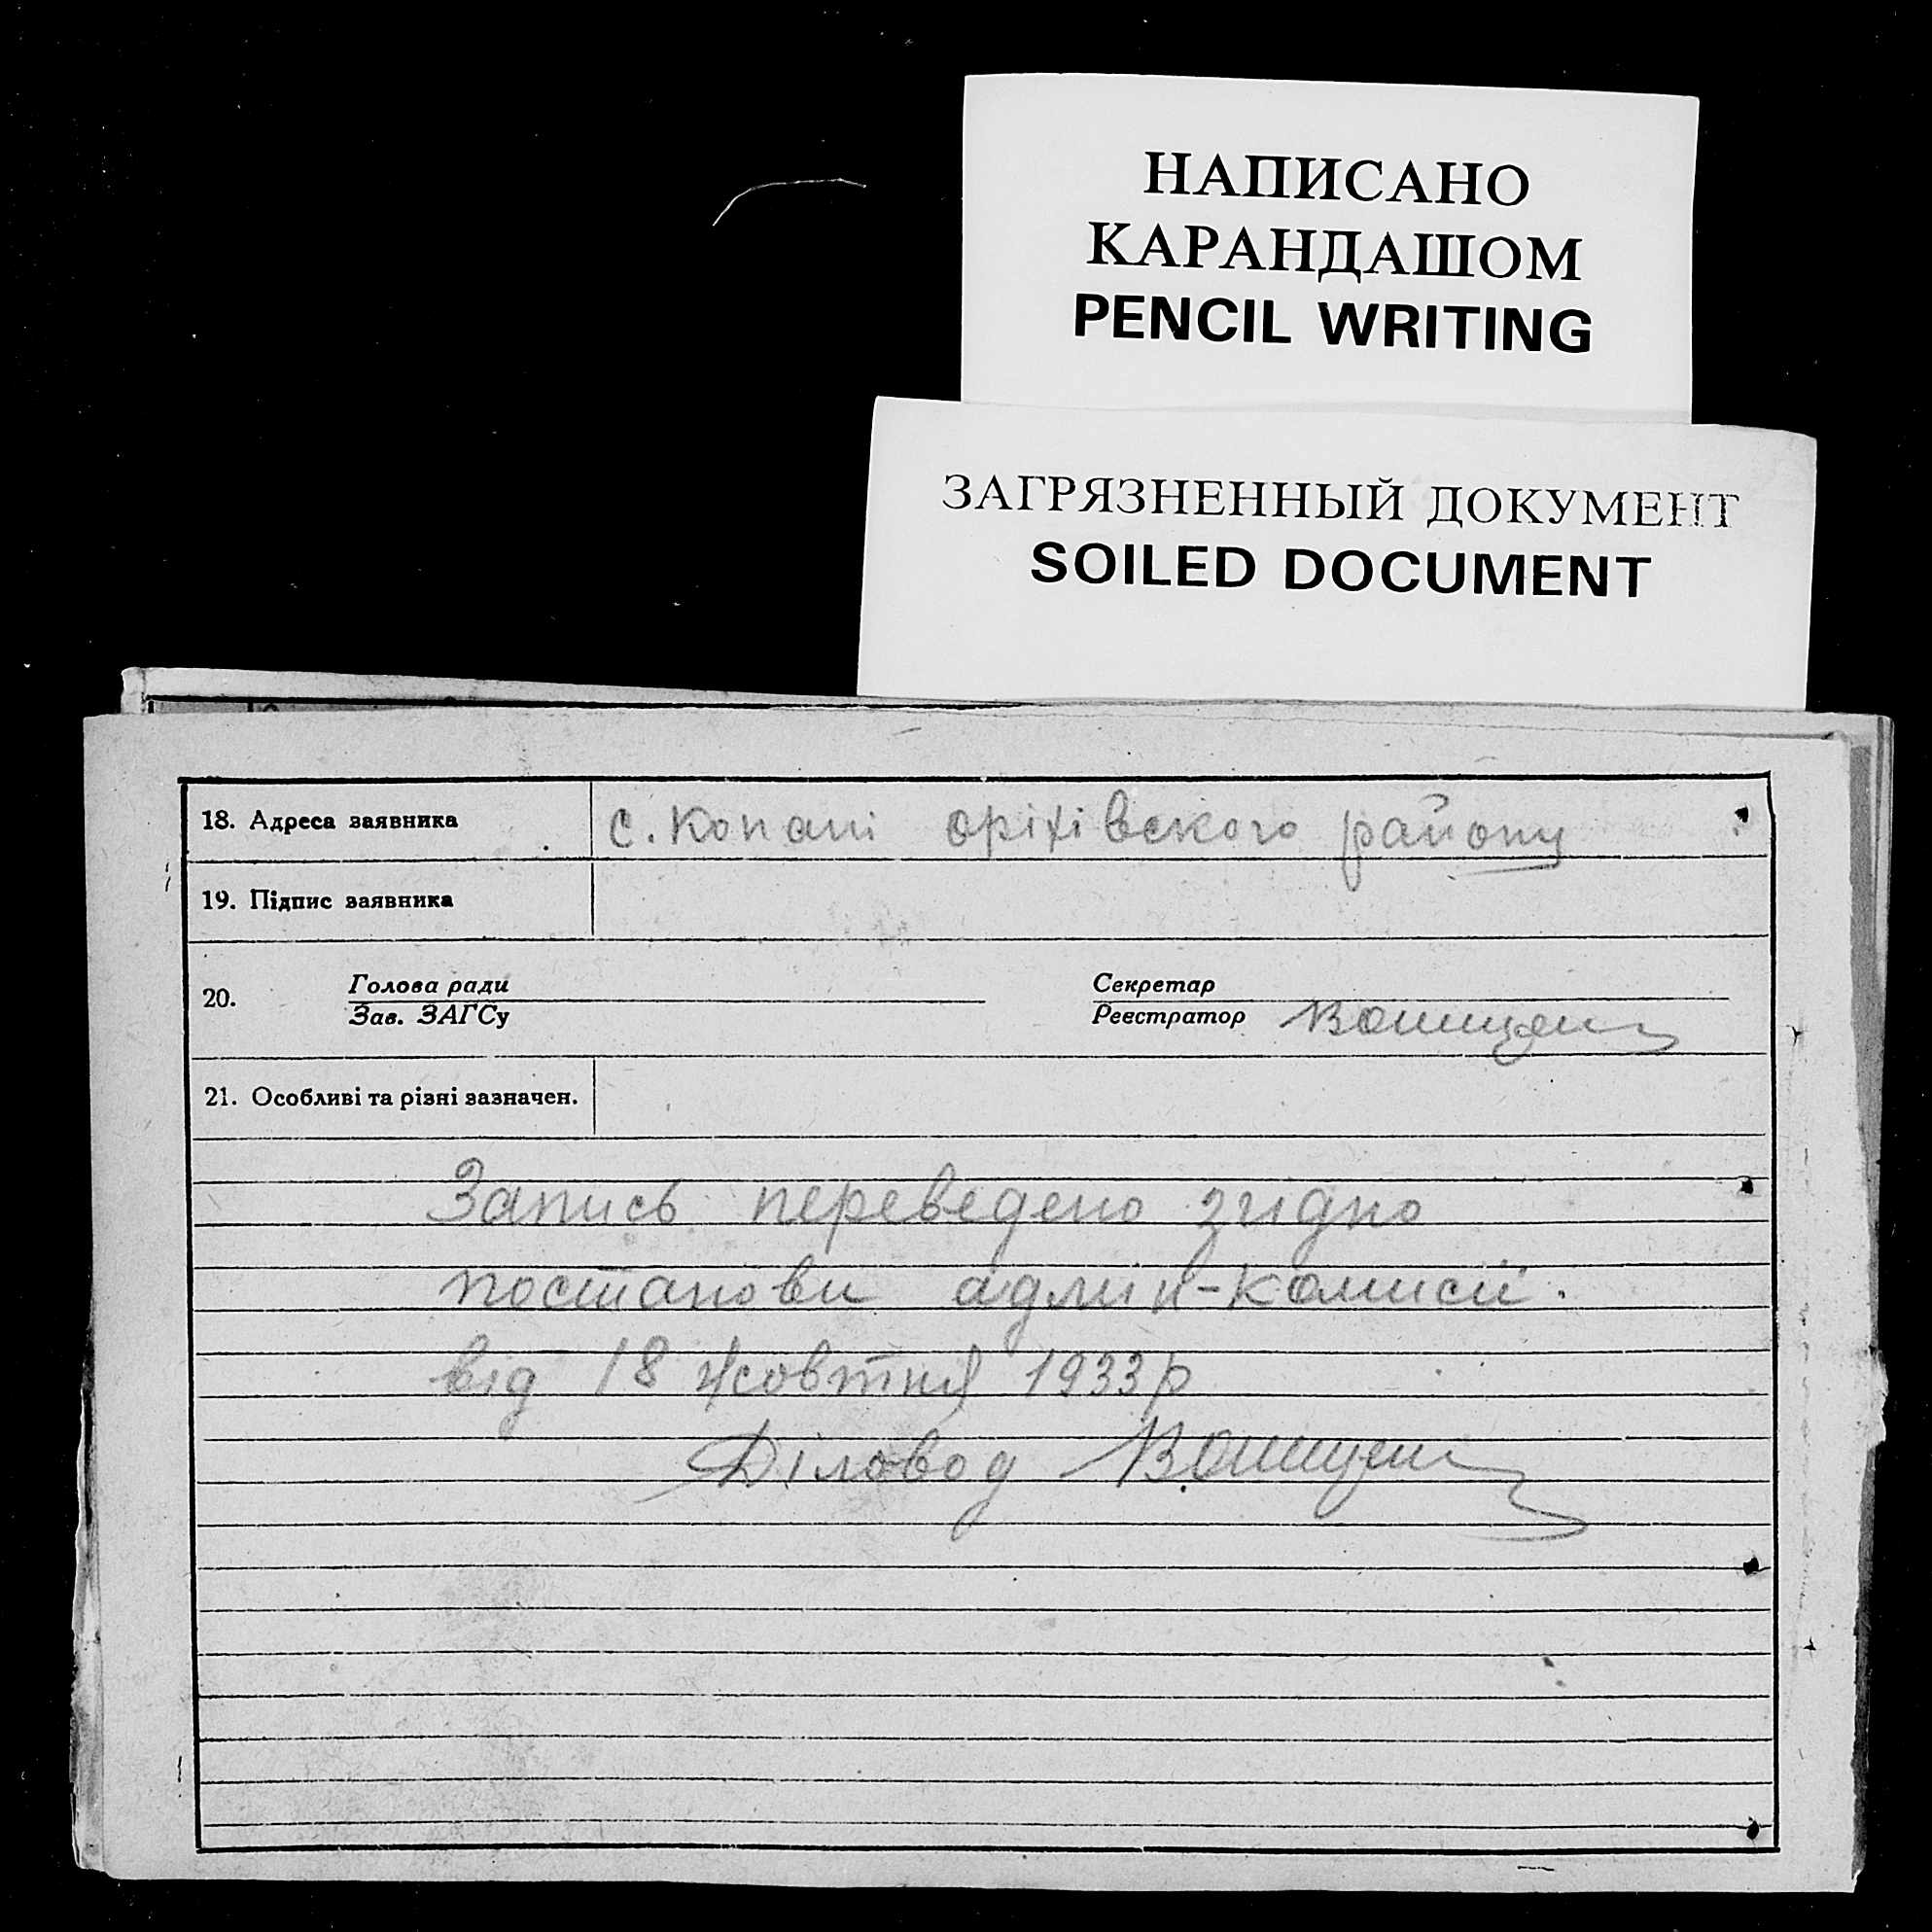 НАПИСАНО
КАРАНДАШОМ
PENCIL WRITING
ЗАГРЯЗНЕННЫЙ ДОКУМЕНТ
SOILED DOCUMENT
18. Адреса заявника с. Копані оріхівского району
19. Підпис заявника
20. Голова ради Секретар
Зав. ЗАГСу Реєстратор
21. Особливі та різні зазначен.
Запись переведено згідно
постанови адмін-комисії.
від 18 жовтня 1933 р
Діловод